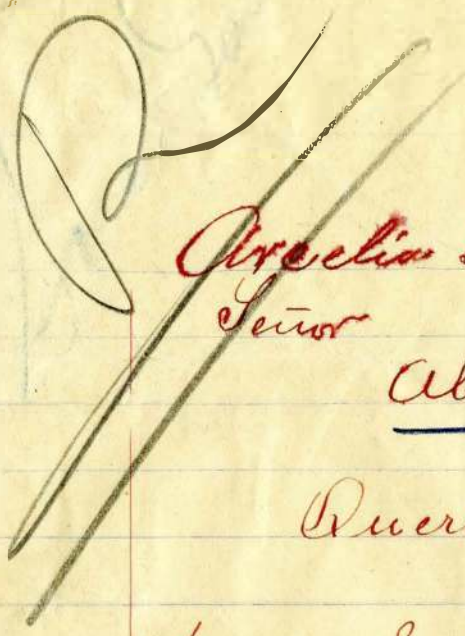 Arcelia
Señor
Al
Quer